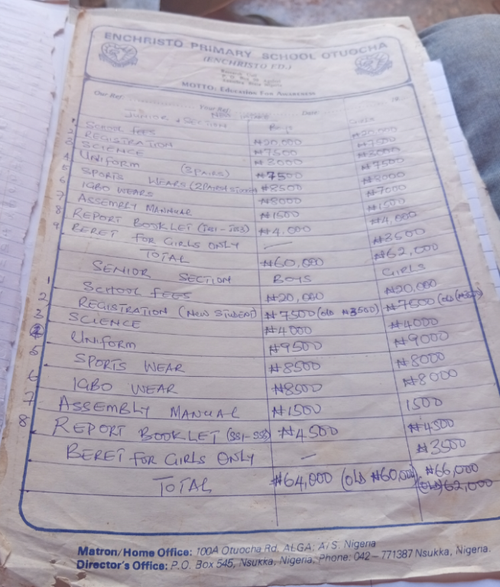 ENCHRISTO PRIMARY SCHOOL OTUOCHA
(ENCHRISTO ED.)
MOTTO: Education For Awareness
Our Ref: Your Ref: Date
JUNIOR SECTION Boys
1 SCHOOL FEES ₦20,000 ₦20,000
2 REGISTRATION ₦7500 ₦7500
3 SCIENCE ₦3000
4 UNIFORM (2PAIRS) ₦7500 ₦7500
5 SPORTS WEARS ₦8500 ₦8000
6 IGBO WEARS ₦8000 ₦7000
7 ASSEMBLY MANNUAL ₦1500 ₦1500
8 REPORT BOOKLET (JSS1-JSS3) ₦4,000 ₦4,000
9 BERET FOR GIRLS ONLY — ₦3500
TOTAL ₦60,000 ₦62,000
SENIOR SECTION BOYS GIRLS
1 SCHOOL FEES ₦20,000 ₦20,000
2 REGISTRATION (NEW STUDENT) ₦7500 (OLD ₦3500) ₦7500 (OLD ₦3500)
3 SCIENCE ₦4000 ₦4000
4 UNIFORM ₦9500 ₦9000
5 SPORTS WEAR ₦8500 ₦8000
6 IGBO WEAR ₦8500 ₦8000
7 ASSEMBLY MANUAL ₦1500 1500
8 REPORT BOOKLET (SS1-SS3) ₦4500 ₦4500
BERET FOR GIRLS ONLY — ₦3500
TOTAL ₦64,000 (OLD ₦60,000) ₦66,000
(OLD) 62,000
Matron/Home Office: 100A Otuocha Rd, ALGA, A/S Nigeria
Director's Office: P.O. Box 545, Nsukka, Nigeria, Phone: 042-771387 Nsukka, Nigeria.